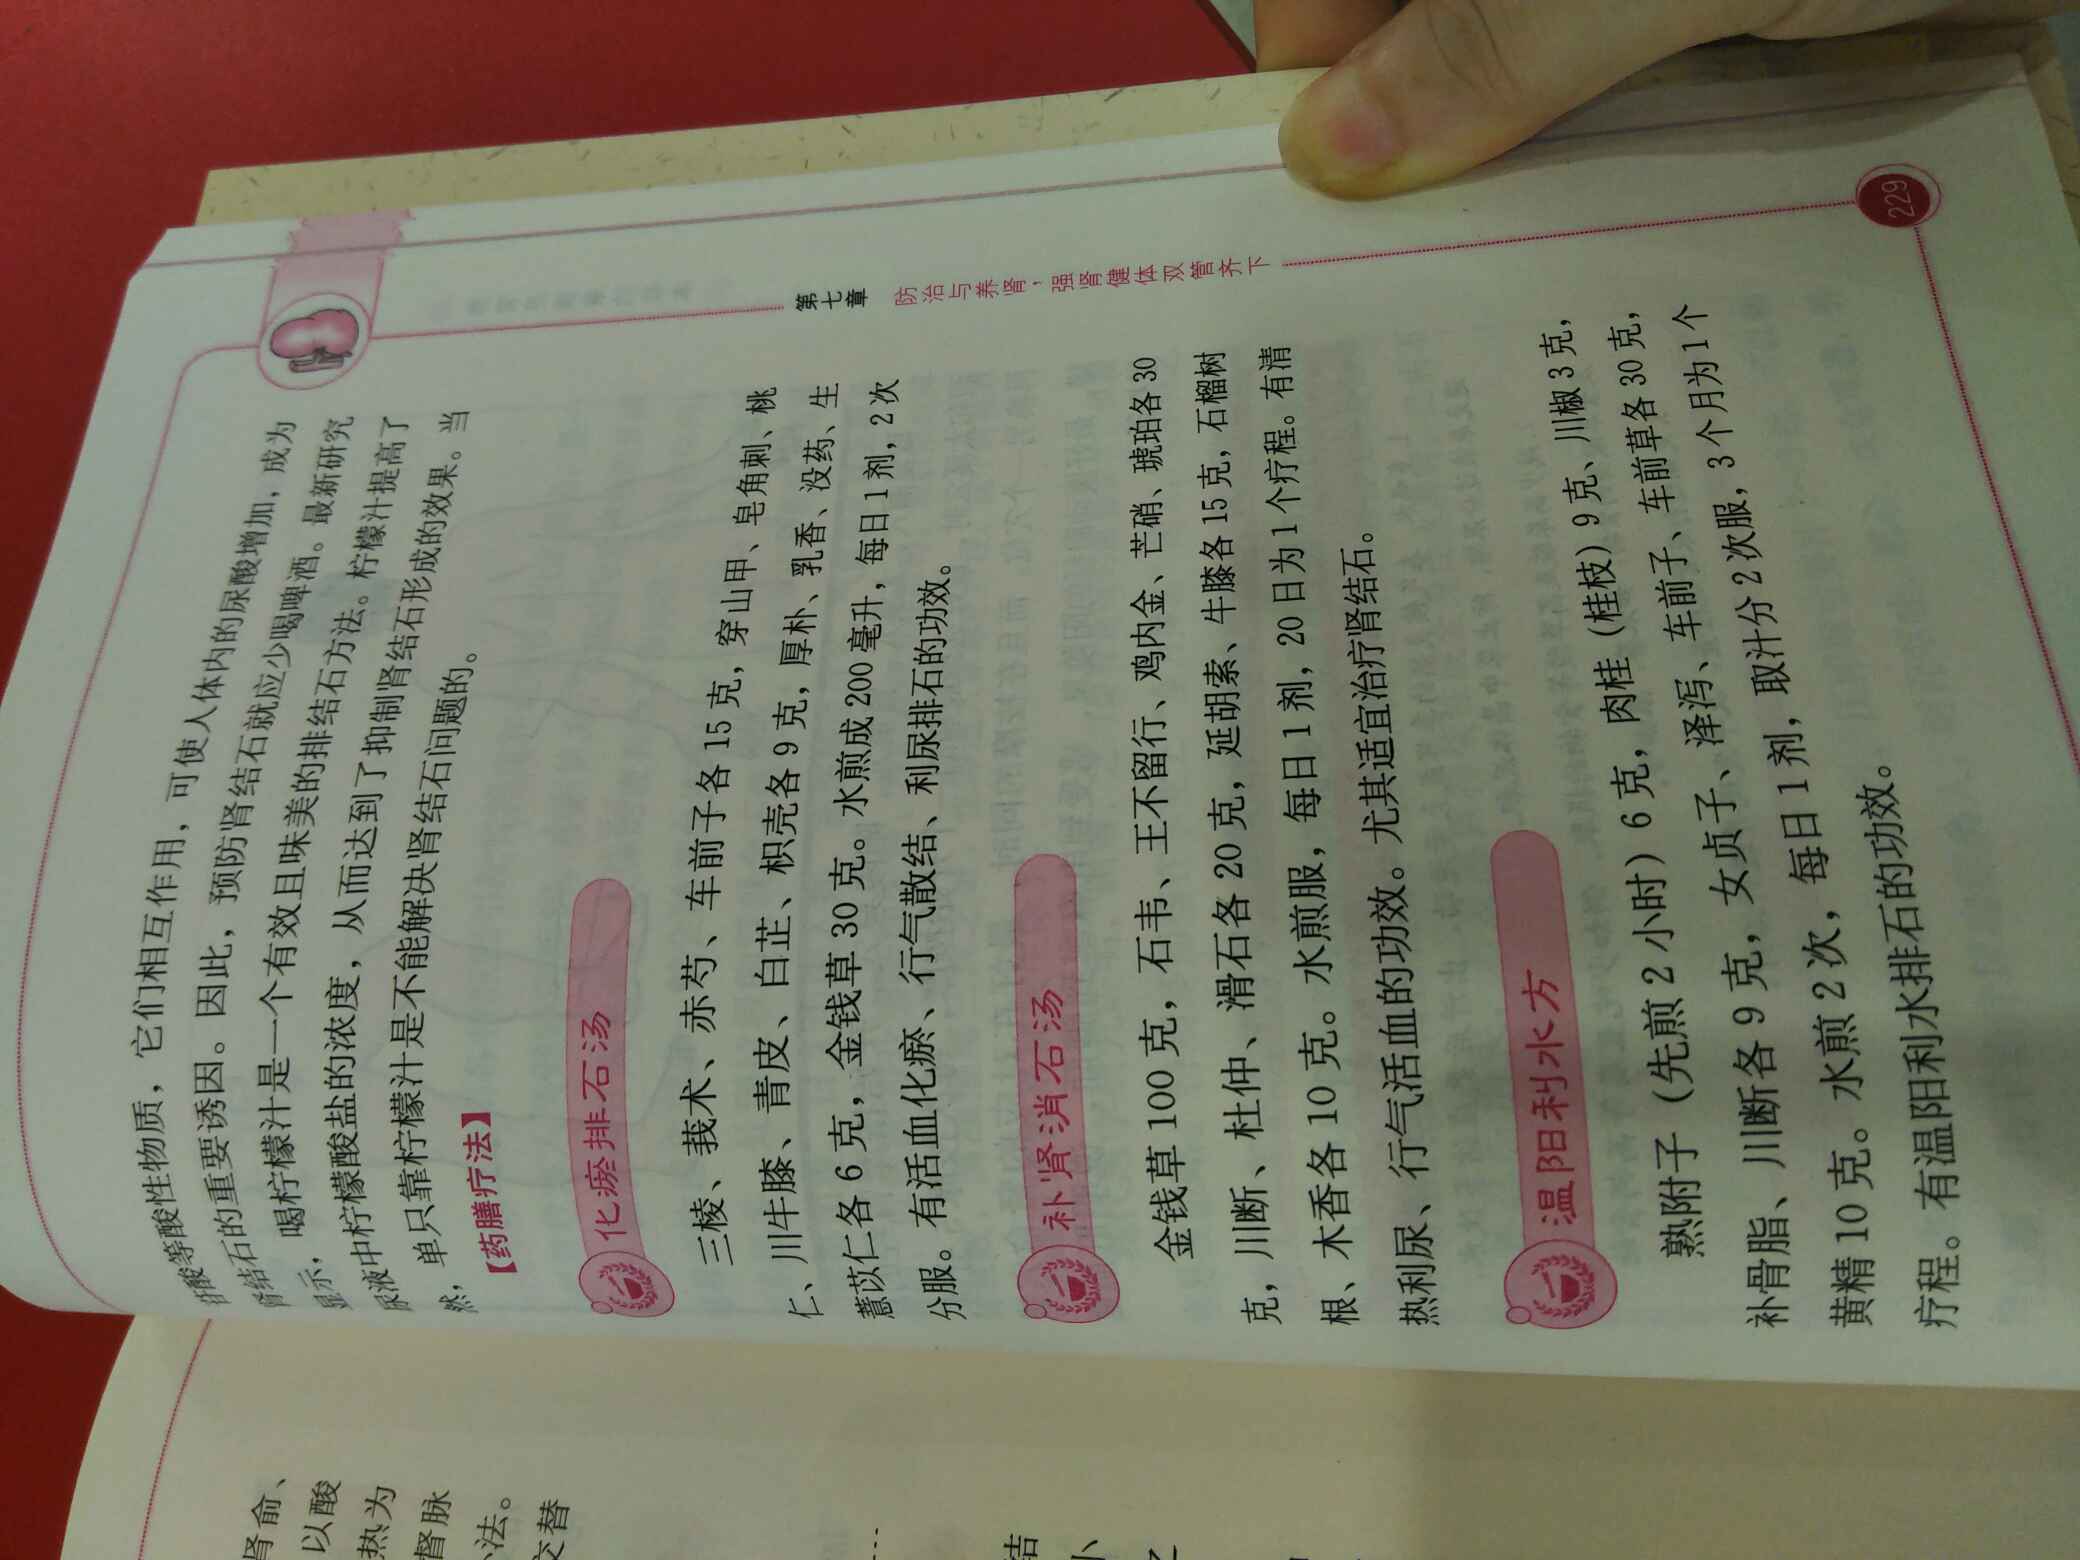 酐酸等酸性物质，它们相互作用，可使人体内的尿酸增加，成为
肾结石的重要诱因。因此，预防肾结石就应少喝啤酒。最新研究
显示，喝柠檬汁是一个有效且味美的排结石方法。柠檬汁提高了
尿液中柠檬酸盐的浓度，从而达到了抑制肾结石形成的效果。当
然，单只靠柠檬汁是不能解决肾结石问题的。
【药膳疗法】
化瘀排石汤
三棱、莪术、赤芍、车前子各15克，穿山甲、皂角刺、桃
仁、川牛膝、青皮、白芷、枳壳各9克，厚朴、乳香、没药、生
薏苡仁各6克，金钱草30克。水煎成200毫升，每日1剂，2次
分服。有活血化瘀、行气散结、利尿排石的功效。
补肾消石汤
金钱草100克，石韦、王不留行、鸡内金、芒硝、琥珀各30
克，川断、杜仲、滑石各20克，延胡索、牛膝各15克，石榴树
根、木香各10克。水煎服，每日1剂，20日为1个疗程。有清
热利尿、行气活血的功效。尤其适宜治疗肾结石。
温阳利水方
熟附子（先煎2小时）6克，肉桂（桂枝）9克、川椒3克，
补骨脂、川断各9克，女贞子、泽泻、车前子、车前草各30克，
黄精10克。水煎2次，每日1剂，取汁分2次服，3个月为1个
疗程。有温阳利水排石的功效。
第七章
防治与养肾，强肾健体双管齐下
229
肾俞、
以酸
热为
督脉
法。
交替
结
小